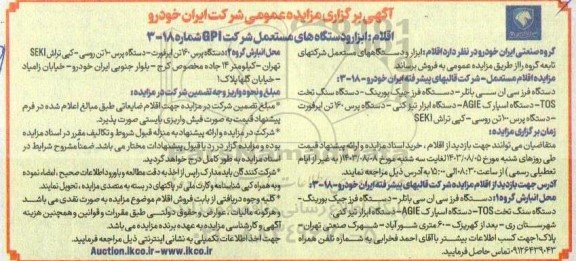 آگهی برگزاری مزایده عمومی شرکت ایران خودرو
اقلام: ابزار و دستگاه های مستعمل شرکت GPI شماره ۱۸-۳
گروه صنعتی ایران خودرو در نظر دارد اقلام: ابزار و دستگاههای مستعمل شرکتهای
تابعه گروه را از طریق مزایده عمومی به فروش برساند.
مزایده اقلام مستعمل - شرکت قالبهای پیشرفته ایران خودرو - ۱۸-۳:
دستگاه فرز سی ان سی باتلر - دستگاه فرز جیک بورینگ - دستگاه سنگ تخت
TOS - دستگاه اسپارک AGIE - دستگاه ابزار تیز کنی - دستگاه پرس ۱۶۰ تن ایرفورت
- دستگاه پرس ۱۰۰ تن روسی - کپی تراش SEKI
زمان برگزاری مزایده:
متقاضیان می توانند جهت بازدید از اقلام، خرید اسناد مزایده و ارائه پیشنهاد قیمت
طی روزهای شنبه مورخ ۱۴۰۳/۰۸/۰۵ لغایت سه شنبه مورخ ۱۴۰۳/۰۸/۰۸ (به غیر از ایام
تعطیلی رسمی) از ساعت ۰۸:۳۰ الی ۱۵:۰۰ به آدرس ذیل مراجعه نمایند.
آدرس جهت بازدید از اقلام مزایده شرکت قالبهای پیشرفته ایران خودرو - ۱۸-۳:
محل انبارش گروه ۱: دستگاه فرز سی ان سی باتلر - دستگاه فرز جیک بورینگ -
دستگاه سنگ تخت TOS - دستگاه اسپارک AGIE - دستگاه ابزار تیز کنی
شهرستان ری - بعد از کهریزک - ۶۰ متری شورآباد - شهرک صنعتی تهران -
پلاک ۱ جهت کسب اطلاعات بیشتر با آقای احمد فخرایی به شماره تلفن همراه
۰۹۱۲۶۴۳۹۰۴۳ تماس حاصل فرمایید.
محل انبارش گروه ۲: دستگاه پرس ۱۶۰ تن ایرفورت - دستگاه پرس ۱۰۰ تن روسی - کپی تراش SEKI
تهران - کیلومتر ۱۴ جاده مخصوص کرج - بلوار جنوبی ایران خودرو - خیابان زامیاد
- خیابان گلها پلاک ۱
مبلغ و نحوه واریز وجه تضمین شرکت در مزایده:
* مبلغ تضمین شرکت در مزایده جهت اقلام ضایعاتی طبق مبالغ اعلام شده در فرم
پیشنهاد قیمت به صورت فیش واریزی بایستی صورت پذیرد.
* شرکت در مزایده و ارائه پیشنهاد به منزله قبول شروط و تکالیف مقرر در اسناد مزایده
بوده و مزایده گزار در رد یا قبول پیشنهادات مختار می باشد. ضمناً مشروح شرایط در
اسناد مزایده به طور کامل درج خواهد گردید.
* شرکت کنندگان باید مدارک را پس از اخذ به دقت مطالعه و با ورود اطلاعات صحیح، امضاء نموده
و به همراه کپی شناسنامه و کارت ملی در پاکتهای در بسته به متصدی مزایده، تحویل نمایند.
* کلیه وجوه دریافتی از بابت فروش اقلام موضوع مزایده به صورت نقدی می باشد
و هرگونه مالیات، عوارض و حقوق دولتی طبق مقررات و قوانین و همچنین هزینه
آگهی و کارشناسی مزایده به عهده برنده مزایده می باشد.
جهت اخذ اطلاعات تکمیلی به نشانی اینترنتی ذیل مراجعه فرمایید.
Auction.ikco.ir-www.ikco.ir